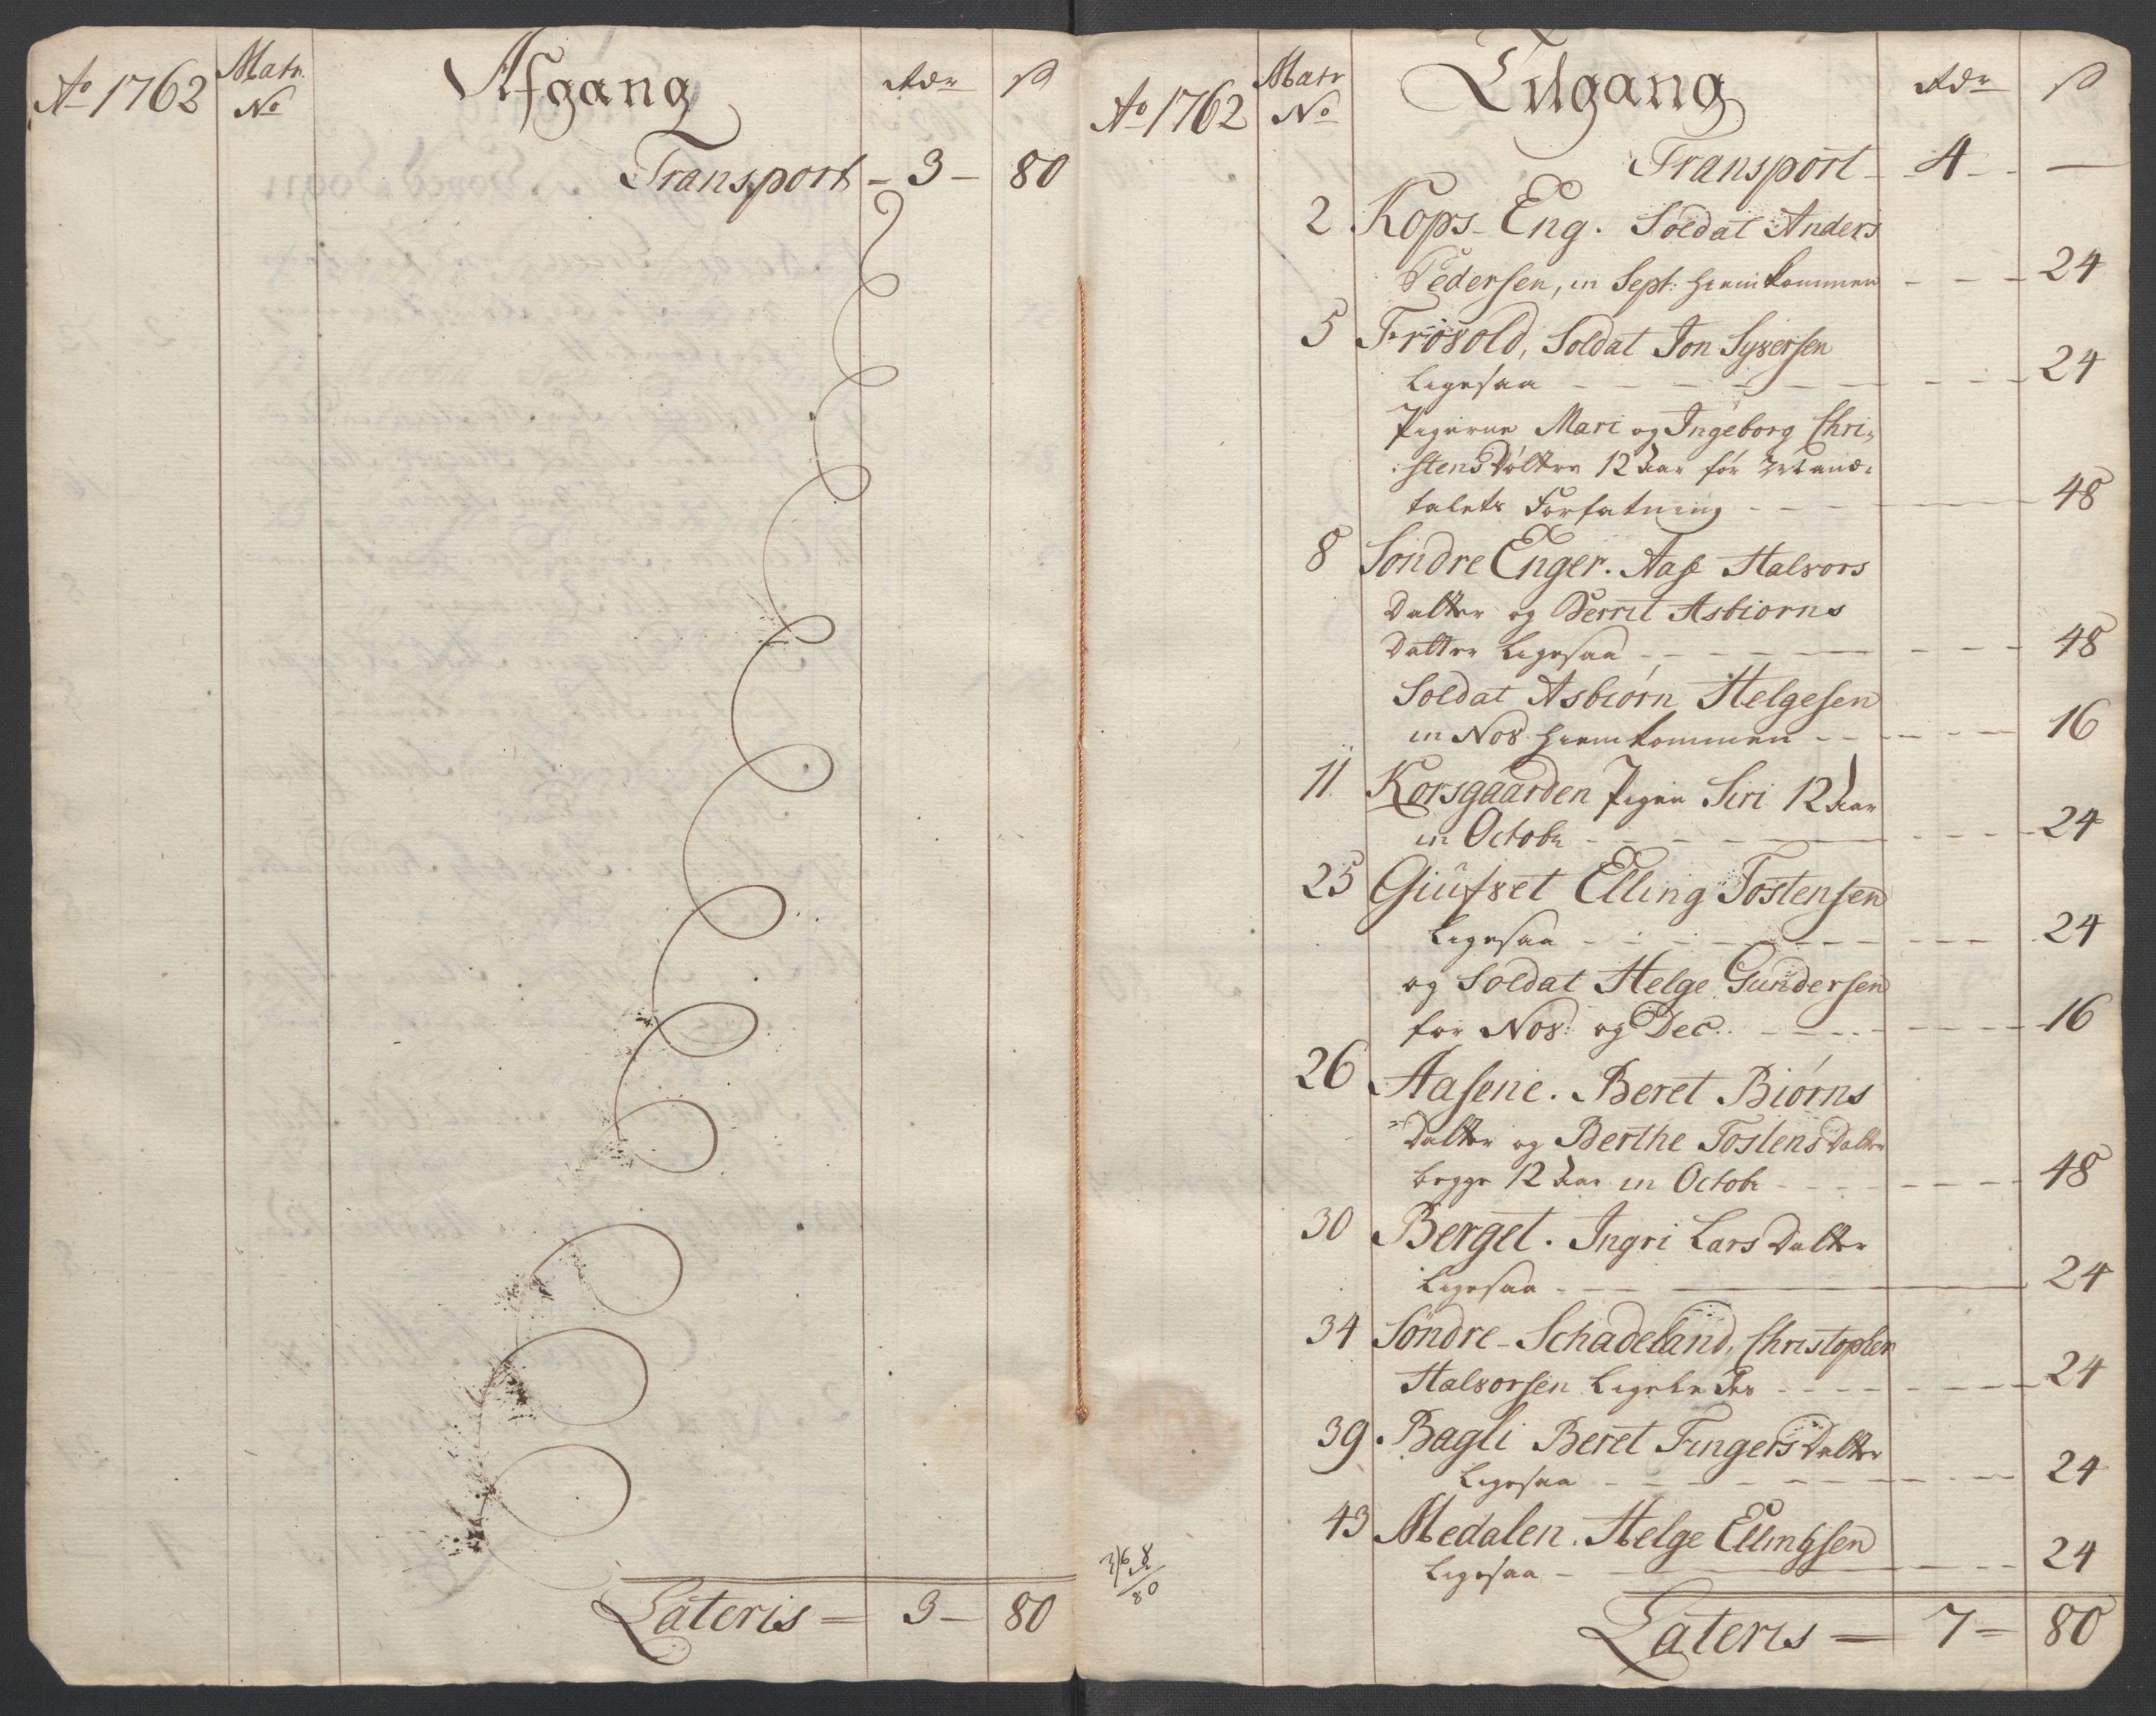 Ao 1762
Matr
No
Afgang
Rdr
ß
Transport - 3 - 80
Lateris = 3 - 80
Ao 1762
Matr
No
Tilgang
Rdr
ß
Transport - 4 - -
2 Kops-Eng. Soldat Anders
Pedersen, in Sept: hiemkommen - - - 24
5 Frøsold, Soldat Jon Syversen
Ligesaa - - - 24
Pigerne Mari og Ingeborg Chri-
stens Døttre 12 Aar før
talets Forfatning - - - 48
8 Søndre Enger. Aase Halvors
Datter og Berrit Asbiorns
Datter Ligesaa - - - 48
Soldat Asbiørn Helgesen
in Nov. hiemkommen - - - 16
11. Korsgaarden Pigen Siri 12 Aar
in Octobr - - - 24
25 Giufset Elling Tostensen
Ligesaa - - - 24
og Soldat Helge Gundersen
for Nov: og Dec. - - - 16
26 Aasene. Beret Biørns
Datter og Berthe Tostens Datter
begge 12 Aar in Octobr - - - 48
30 Berget. Ingri Lars Datter
Ligesaa - - - 24
34 Søndre-Schadeland, Christopher
Halvorsen Ligeledes - - - 24
39. Bagli Beret Fingers Datter
Ligesaa - - - 24
43 Medalen. Helge Ellingsen
Ligesaa - - - 24
80
Lateris = 7 = 80